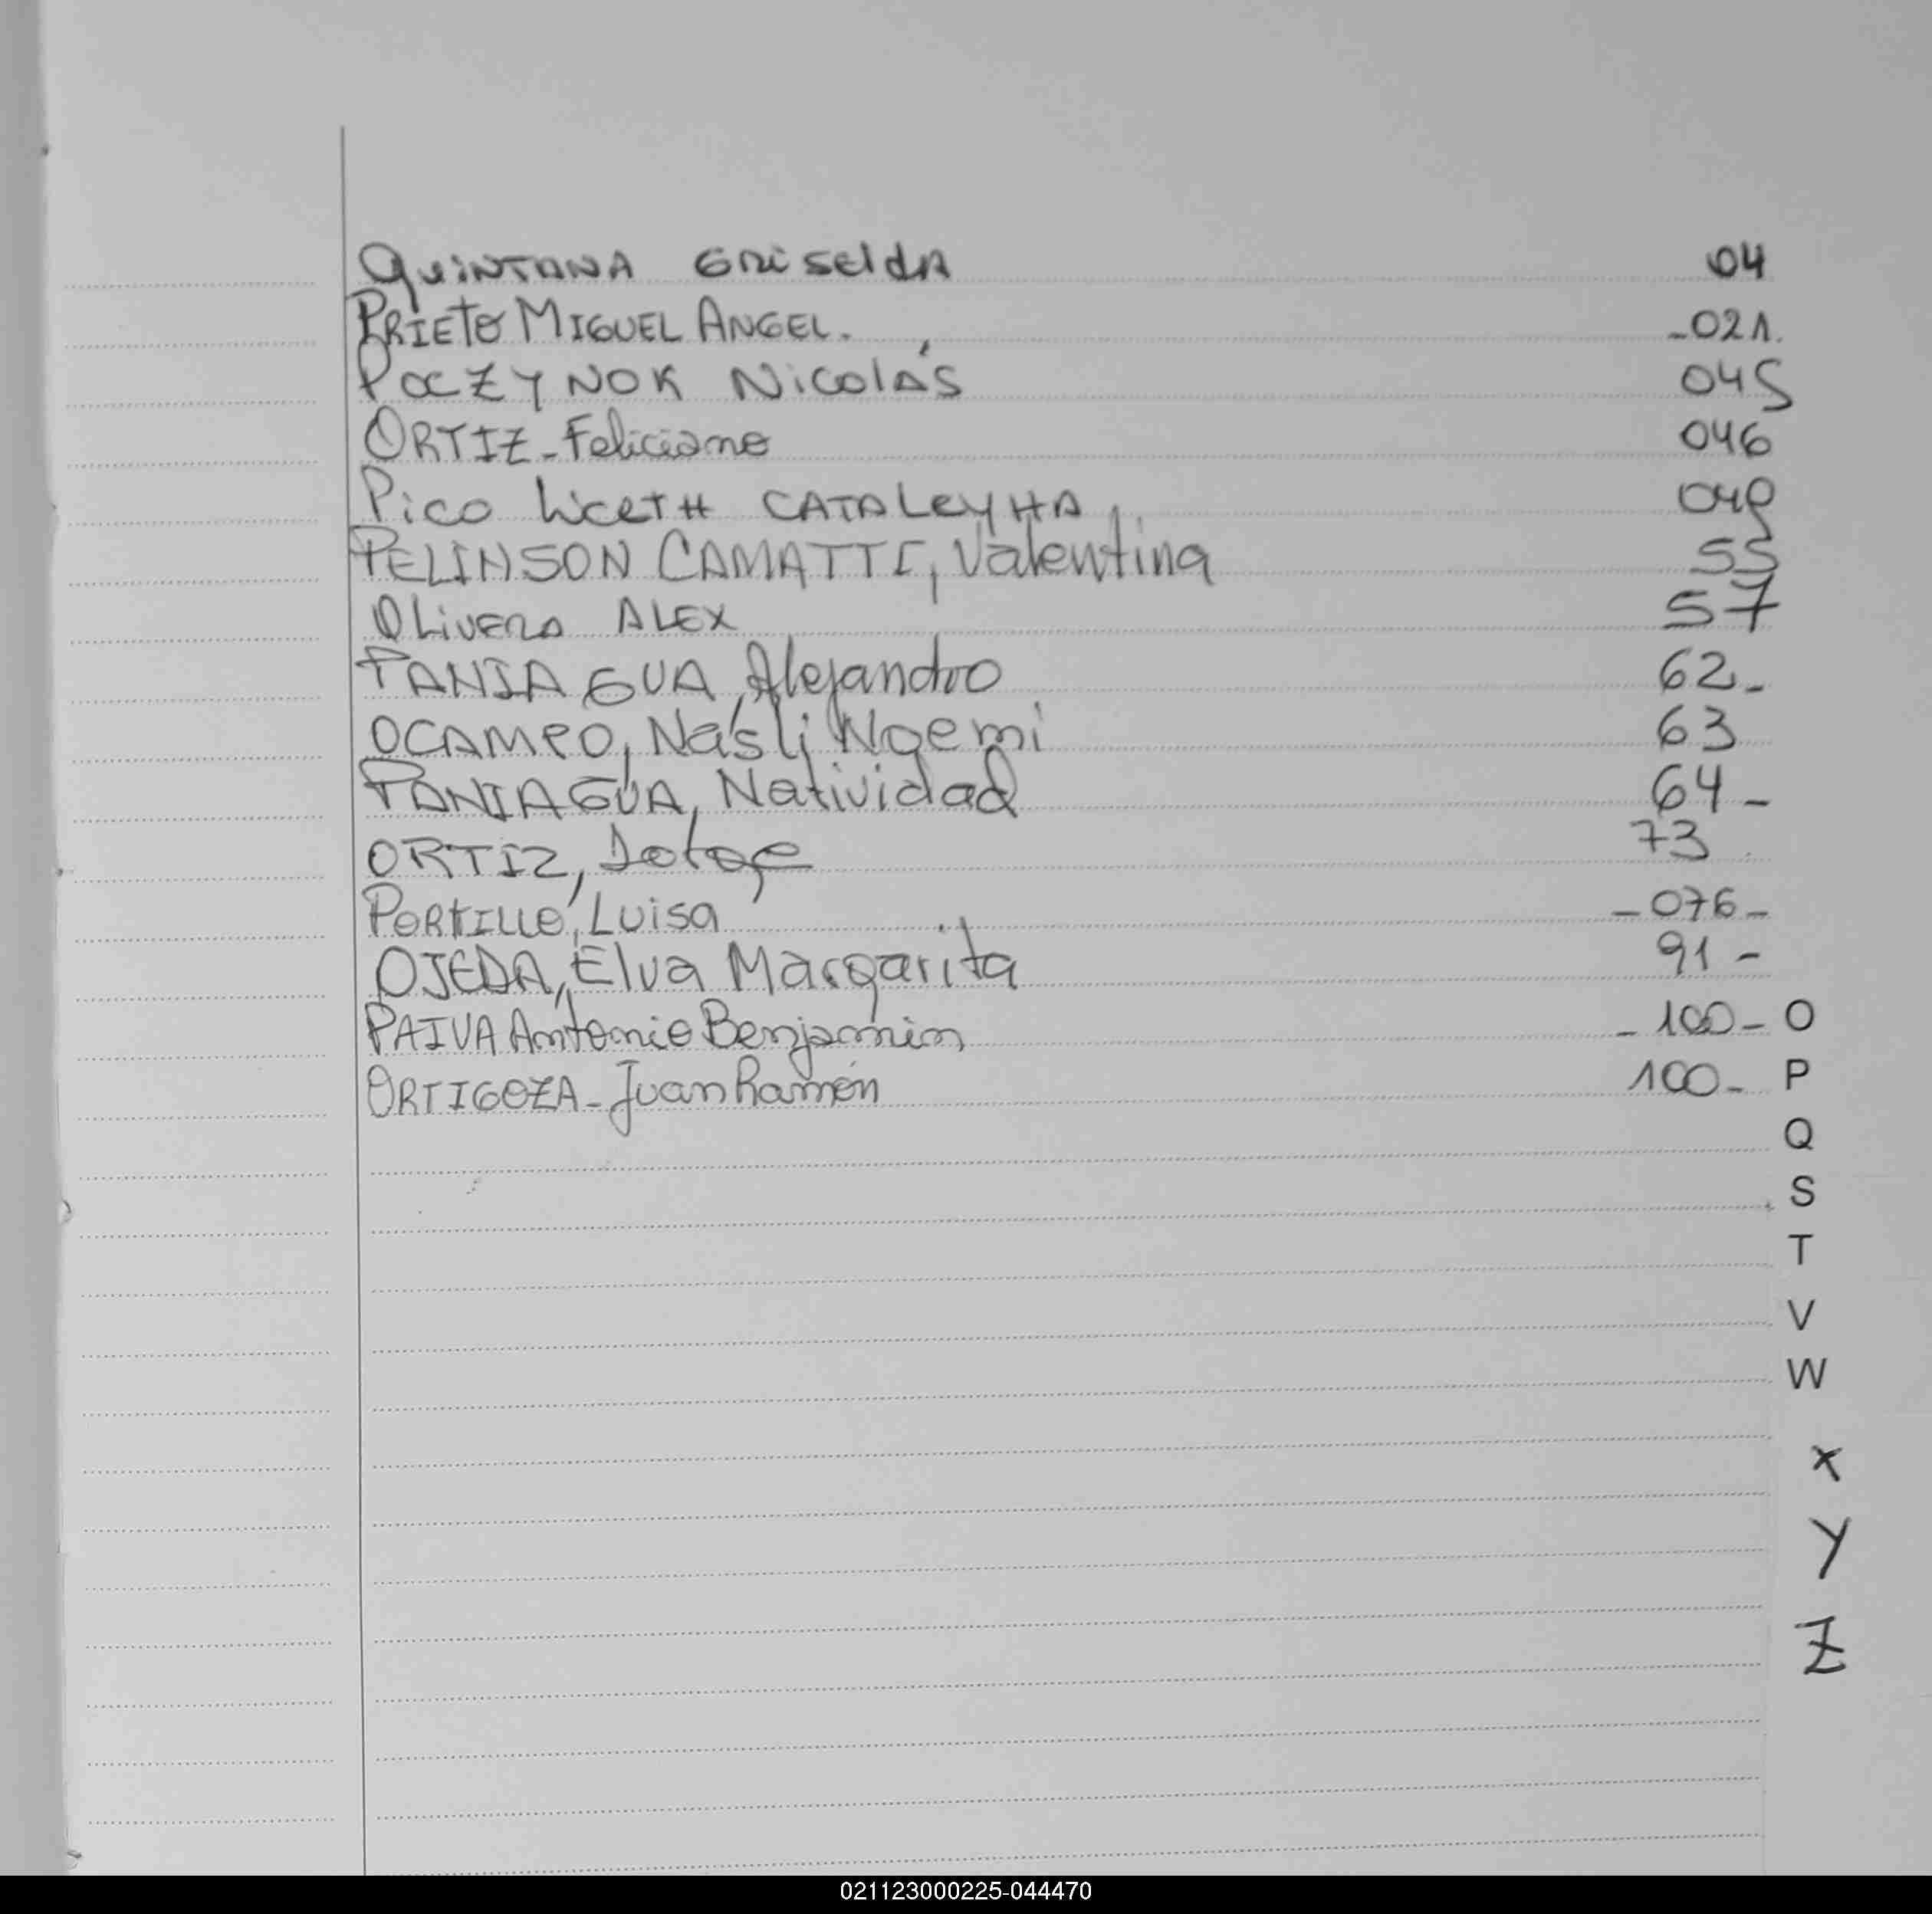 QUINTANA GRISELDA 04
PRIETO MIGUEL ANGEL. -021.
POCZYNOK NICOLÁS 045
ORTIZ - Feliciano 046
Pico Liceth CATALEYHA 049
PELINSON CAMATTI, Valentina 55
OLIVERA ALEX 57
PANIAGUA, Alejandro 62-
OCAMPO, Nasli Noemi 63
PANIAGUA, Natividad 64-
ORTIZ, Jorge 73
PORTILLO, Luisa -076-
OJEDA, Elva Margarita 91-
PAIVA Antonio Benjamin -100- O
ORTIGOZA - Juan Ramón 100- P
Q
S
T
V
W
X
Y
Z
021123000225-044470